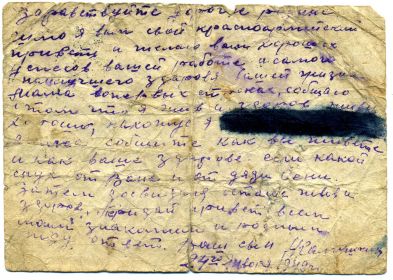 Здравствуйте дорогие родные
шлю я вам свой красноармейский
привет и желаю вам хороших
успехов вашей работе а самое
наилучшего здоровья вашей жизни
Мама вопервых строках сообщаю
о том что я жив и здоров живу
хорошо, нахожусь я
сообщите как вы живете
и как ваше здоровье если какой
слух от Вани и от дяди Сени.
затем до свидания остаюсь жив и
здоров. передай привет всем
моим знакомым и родным
жду ответ. ваш сын
24го